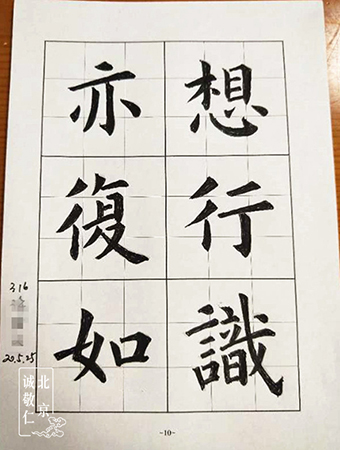 想行識
亦復如
316
20.5.25
北京
诚敬仁
~10~